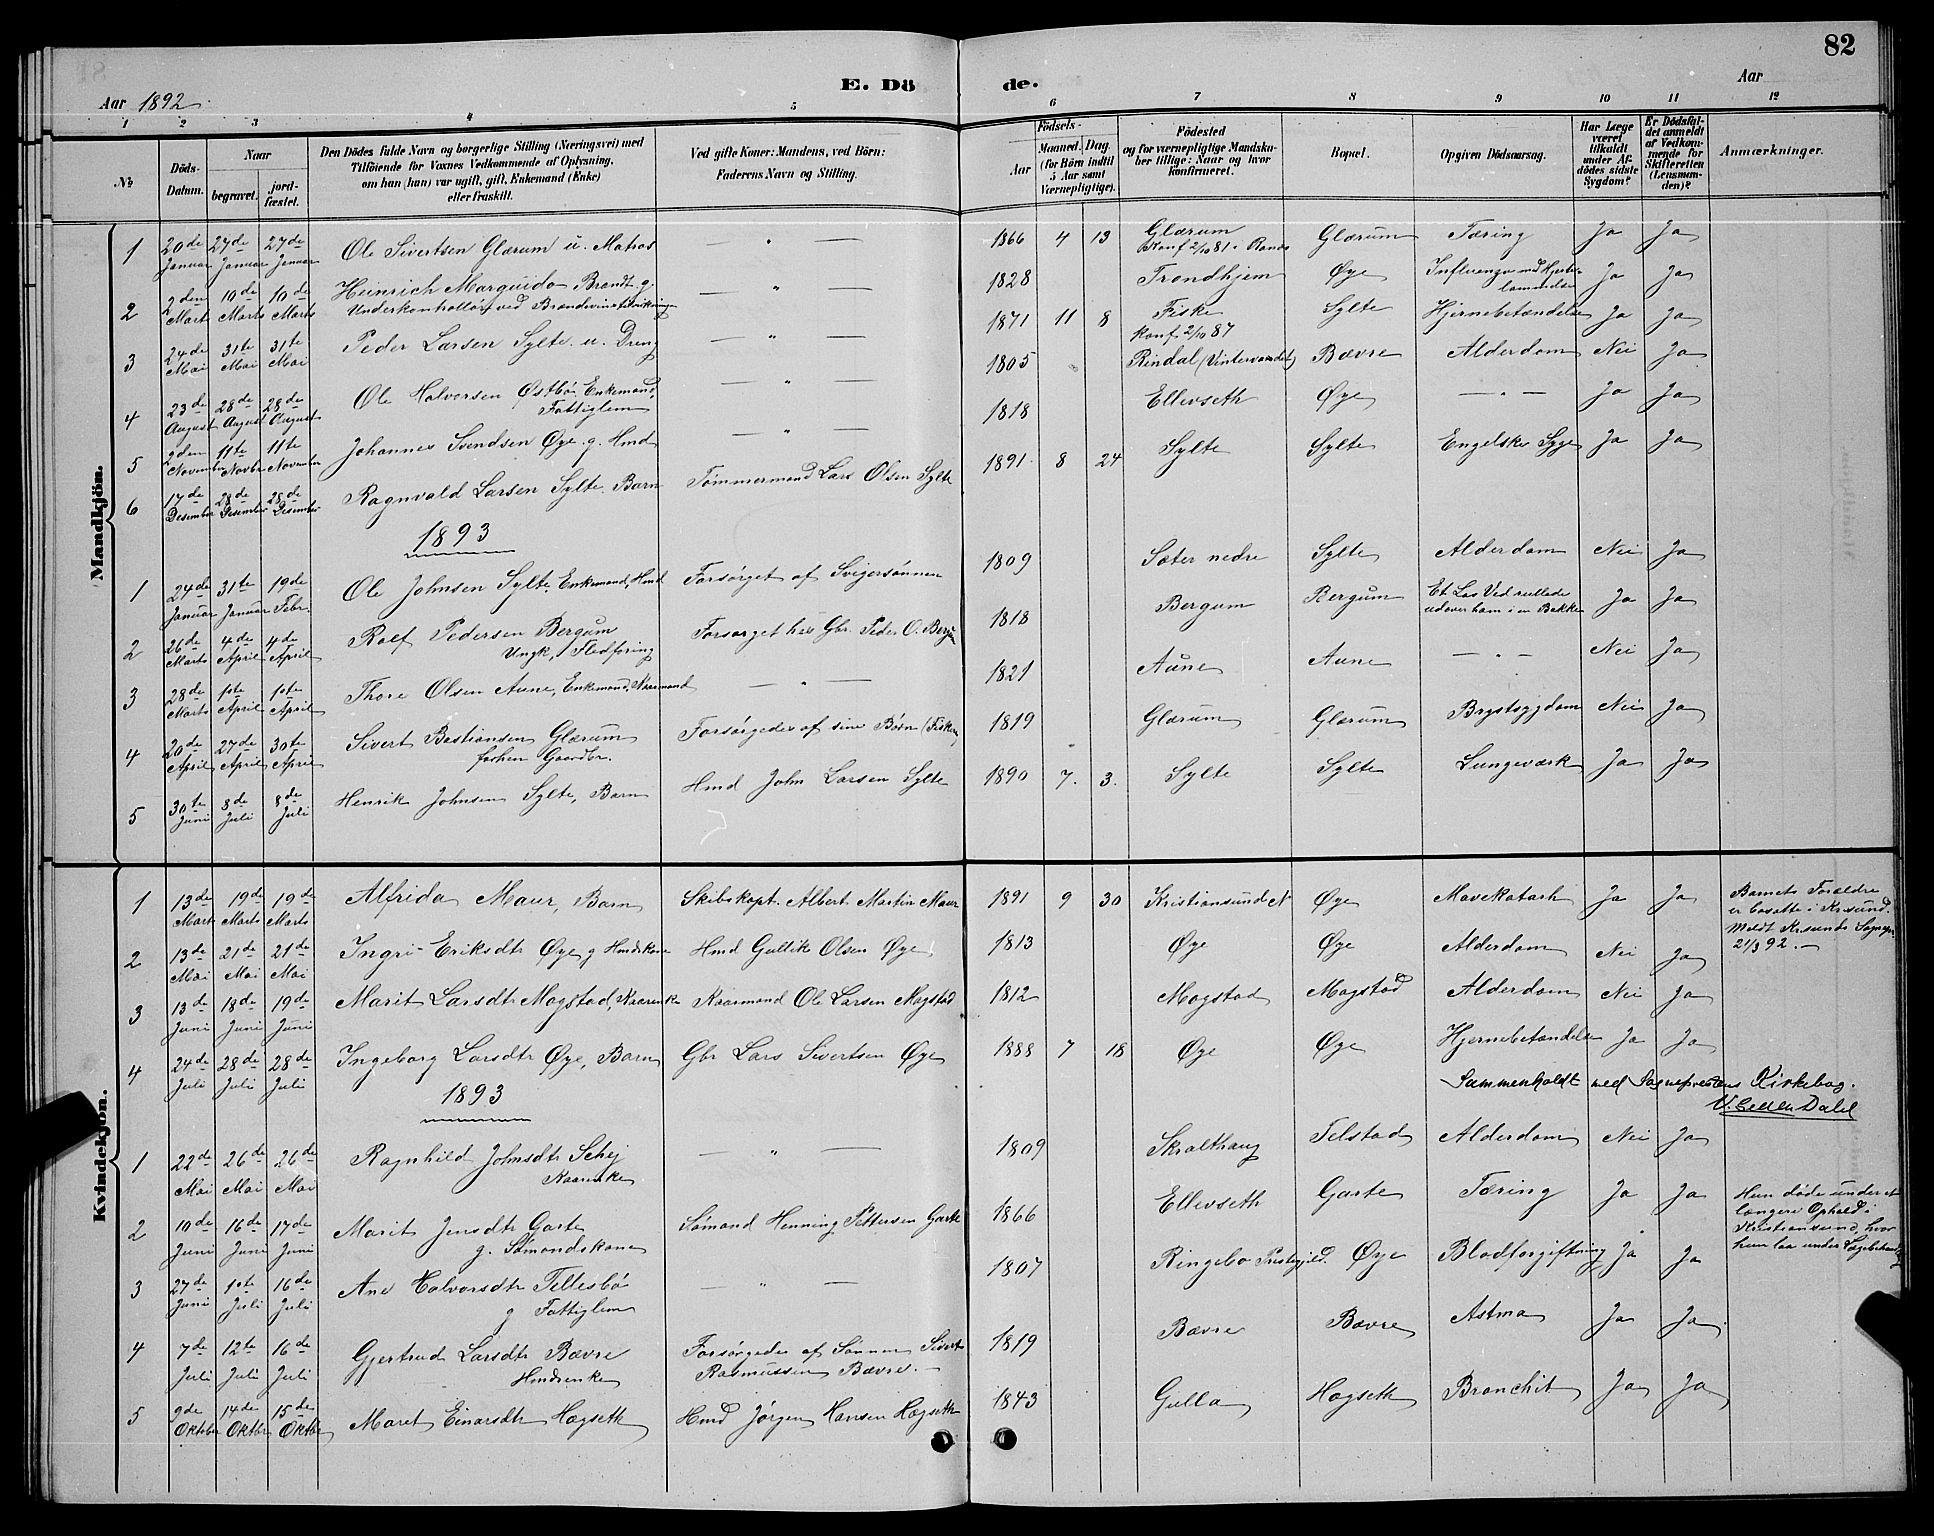 82
Aar 1892.
E. Dö
de.
Aar
1 2 3 4 5 6 7 8 9 10 11 12
№
Döds-
Datum.
Naar
begravet.
jord-
fæstet.
Den Dödes fulde Navn og borgerlige Stilling (Næringsvei) med
Tilföiende for Voxnes Vedkommende af Oplysning,
om han (hun) var ugift, gift, Enkemand (Enke)
eller fraskilt.
Ved gifte Koner: Mandens, ved Börn:
Faderens Navn og Stilling.
Födsels-
Aar
Maaned. Dag.
(for Börn indtil
5 Aar samt
Værnepligtige).
Födested
og for værnepligtige Mandska-
ber tillige: Naar og hvor
konfirmeret.
Bopæl.
Opgiven Dödsaarsag.
Har Læge
været
tilkaldt
under Af-
dödes sidste
Sygdom?
Er Dödsfal-
det anmeldt
af Vedkom-
mende for
Skifteretten
(Lensman-
den)?
Anmærkninger.
Mandkjön.
1 20de Januar 27de Januar 27de Januar Ole Sivertsen Glærum u. Matros " 1866 4 13 Glærum Konf. 2/10 81 i Ranes Glærum Tæring Ja Ja
2 2den Marts 10de Marts 10de Marts Heinrich Marquido Brandt g. Underkontrollör ved Brændevinstilvirkning " 1828 Trondhjem Øye Influenza med Hjerte- lammelse Ja Ja
3 24de Mai 31te Mai 31te Mai Peder Larsen Sylte u. Dreng " 1871 11 8 Fiske Konf. 2/10 87 Sylte Hjernebetændelse Ja Ja
4 23de August 28de August 28de August Ole Halvorsen Østbö Enkemand, Fattiglem " 1805 Rindal (Vintervandet) Bævre Alderdom Nei Ja
5 2den November 11te Novbr 11te November Johannes Svendsen Øye g. Hmd " 1818 Ellevseth Øye — " — Ja Ja
6 17de Desember 28de Desember 28de Desember Ragnvald Larsen Sylte. Barn Tömmermand Lars Olsen Sylte 1891 8 24 Sylte Sylte Engelske Syge Ja Ja
1893
1 24de Januar 31te Januar 19de Febr. Ole Johnsen Sylte, Enkemand, Hmd Forsörget af Svigersönnen 1809 Sæter nedre Sylte Alderdom Nei Ja
2 26de Marts 4de April 4de April Rolf Pedersen Bergum Ungk, Flodföring Forsörget hos Gbr. Peder O. Bergum 1818 Bergum Bergum Et Læs Ved rullede udover ham i en Bakke Ja Ja
3 28de Marts 1ste April 1ste April Thore Olsen Aune, Enkemand, Kaarmand " 1821 Aune Aune — " — Nei Ja
4 20de April 27de April 30te April Sivert Bastiansen Glærum forhen Gaardbr. Forsörgedes af sine Börn (Fisker) 1819 Glærum Glærum Brystsygdom Nei Ja
5 30te Juni 8de Juli 8de Juli Henrik Johnsen Sylte, Barn Hmd John Larsen Sylte 1890 7. 3. Sylte Sylte Lungeværk Ja Ja
Kvindekjön.
1 13de Marts 19de Marts 19de Marts Alfrida Maur, Barn Skibskapt. Albert Martin Maur 1891 9 30 Kristiansund N Øye Mavekatarh Ja Ja Barnets Forældre er bosatte i Krsund. Meldt Krsunds Sognepr. 21/3 92.
2 13de Mai 21de Mai 21de Mai Ingri Eriksdtr Øye g Hmdskone Hmd Gullik Olsen Øye 1813 Øye Øye Alderdom Nei Ja
3 13de Juni 18de Juni 19de Juni Marit Larsdtr Mogstad, Kaarenke Kaarmand Ole Larsen Mogstad 1812 Mogstad Mogstad Alderdom Nei Ja
4 24de Juli 28de Juli 28de Juli Ingeborg Larsdtr Øye, Barn Gbr Lars Sivertsen Øye 1888 7 18 Øye Øye Hjernebetændelse Ja Ja
Sammenholdt med Sogneprestens Kirkebog.
1893
1 22de Mai 26de Mai 26de Mai Ragnhild Johnsdtr Schej Kaarenke " 1809 Skralthaug Telstad Alderdom Nei Ja
2 10de Juni 16de Juni 17de Juni Marit Jensdtr Garte g. Sömandskone Sömand Henning Pettersen Garte 1866 Ellevseth Garte Tæring Ja Ja Hun döde under et længere Ophold i Kristiansund, hvor hun laa under Lægebehandlg
3 27de Juni 1ste Juli 16de Juli Ane Halvorsdtr Tellesbö g Fattiglem " 1807 Ringebo Prestegjeld. Øye Blodforgiftning Ja Ja
4 7de Juli 12te Juli 16de Juli Gjertrud Larsdtr Bævre Hmdsenke Forsörgedes af Sönnen Sivert Rasmussen Bævre. 1819 Bævre Bævre Astma Ja Ja
5 9de Oktober 14de Oktbr 15de Oktbr Maret Einarsdtr Hogseth Hmd Jörgen Hansen Hogseth 1843 Gulla Hogseth Bronchit Ja Ja